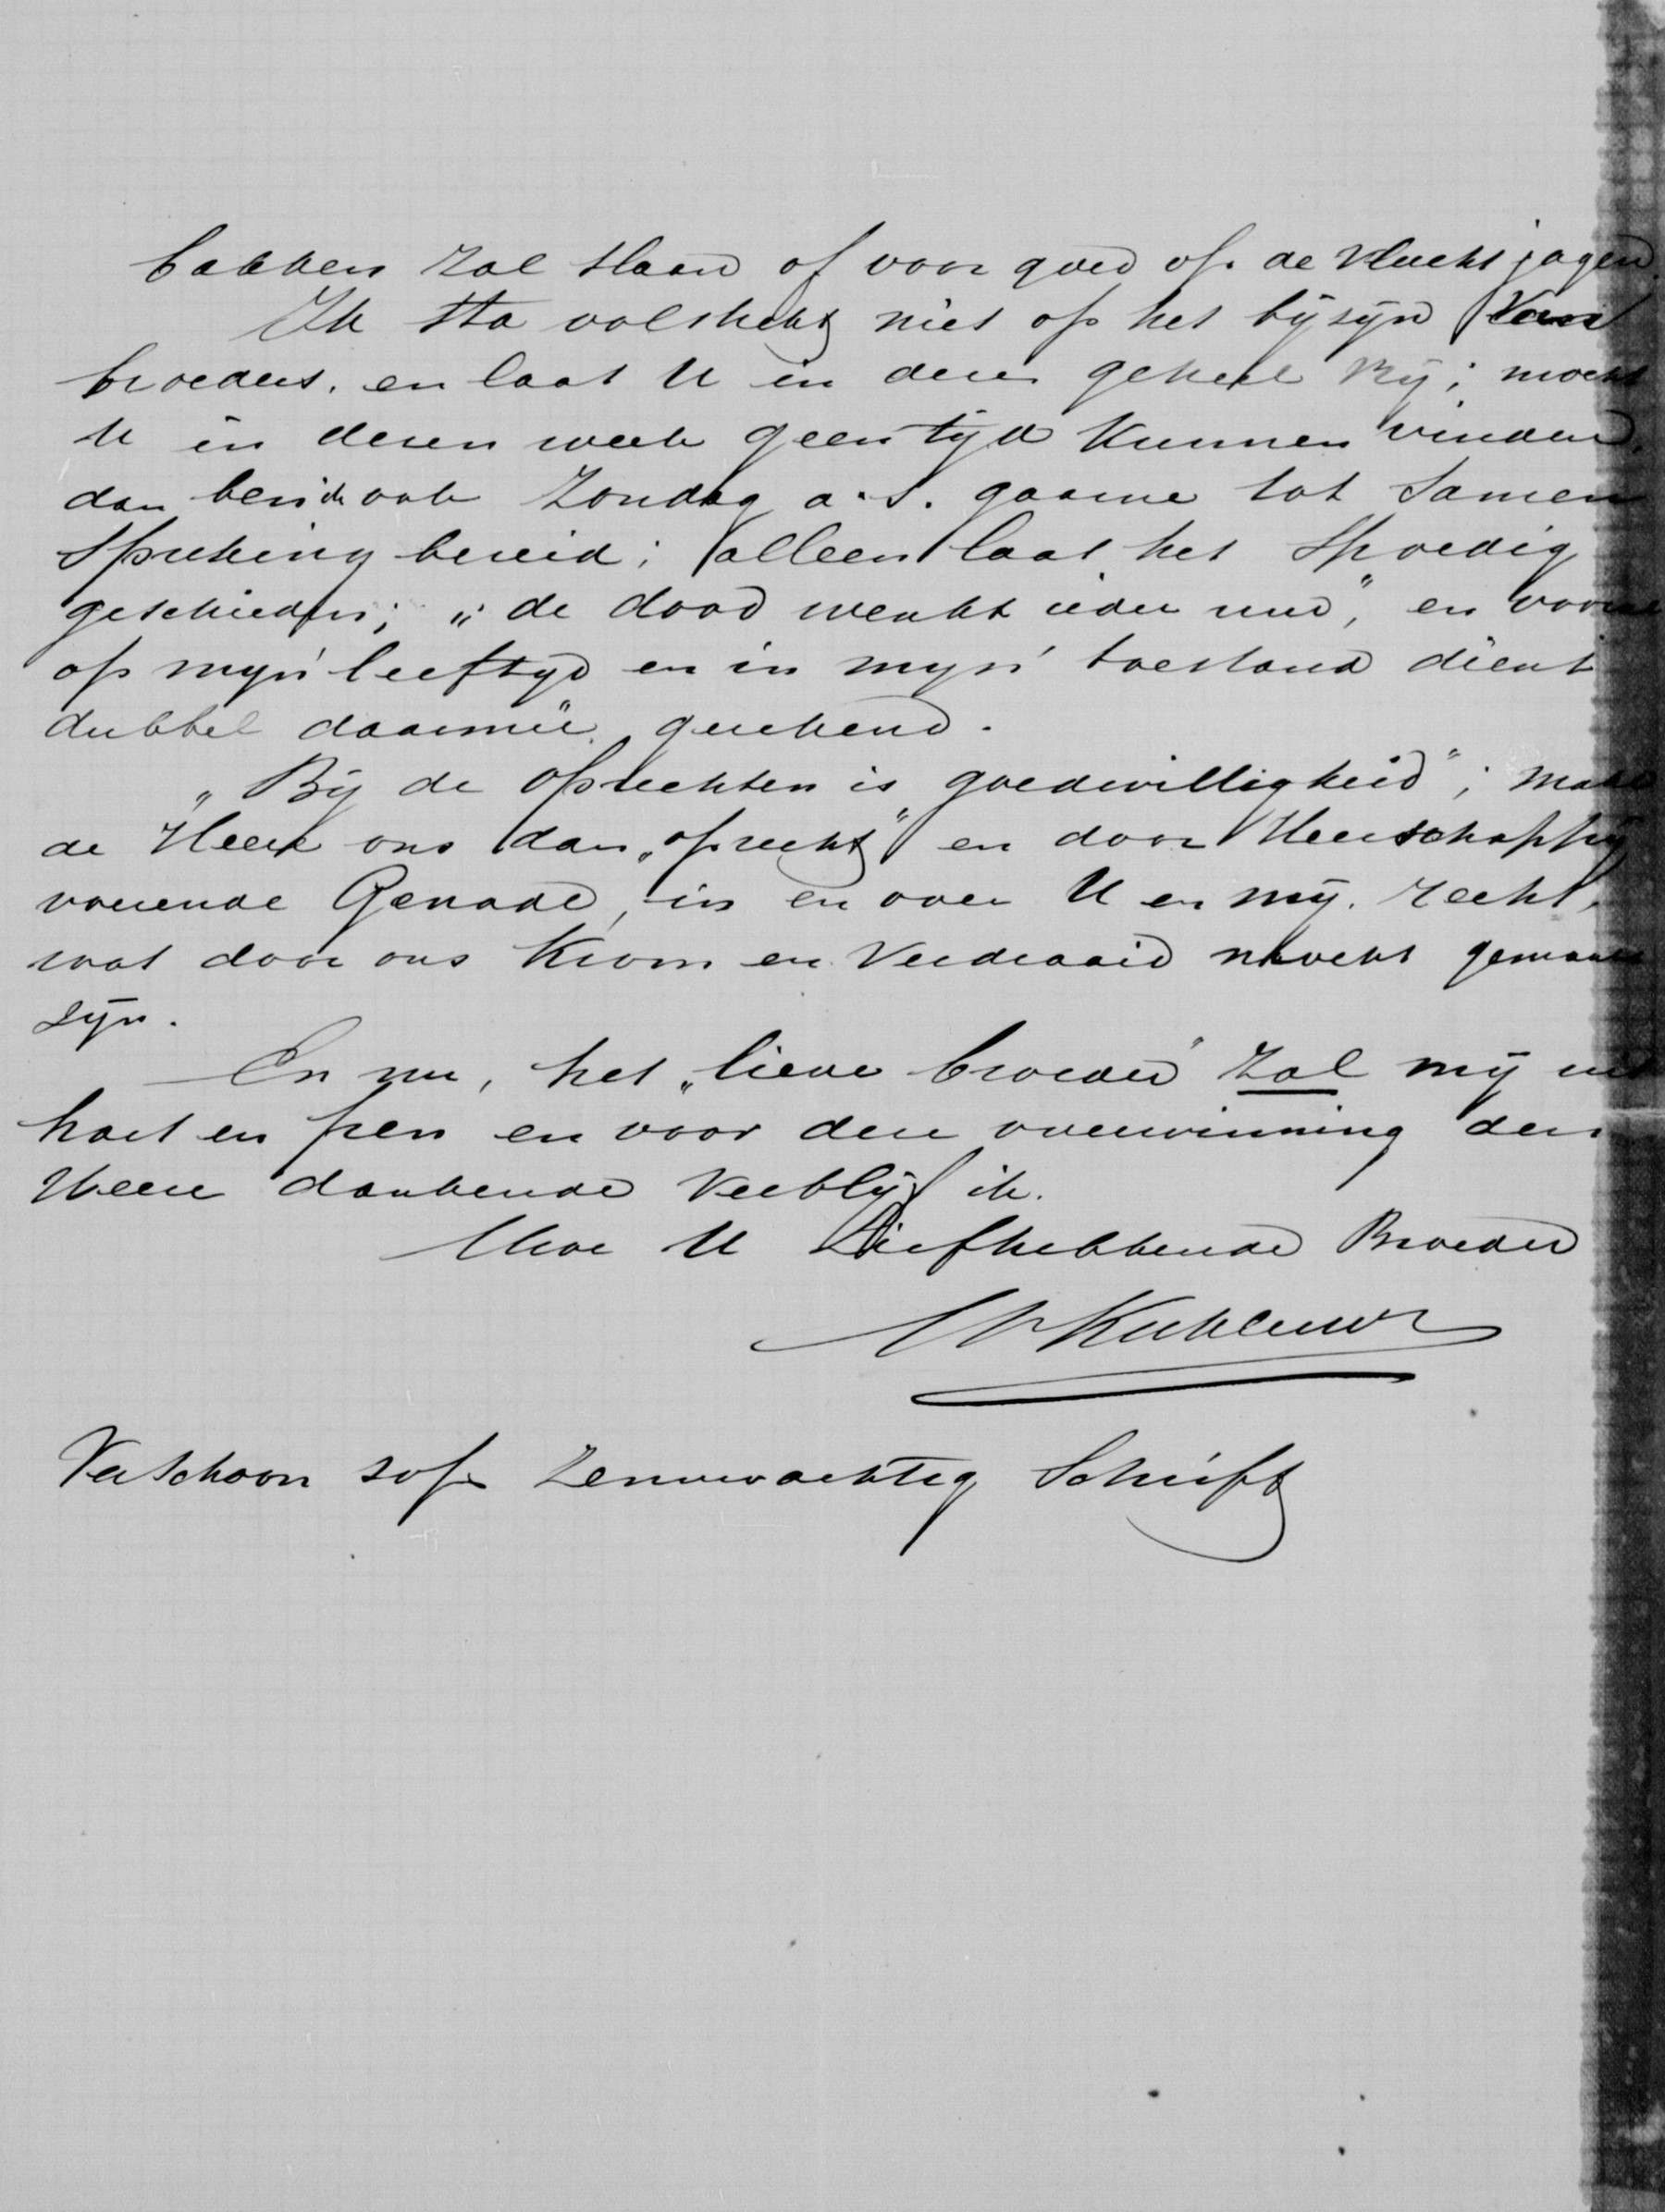 bakken zal slaan of voor goed op de vlucht jagen.
Ik sta volstrekt niet op het bijzijn van
broeders, en laat U in deze geheel vrij; mocht
U in dezen week geen tijd kunnen vinden,
dan ben ik ook Zondag a.s. gaarne tot Samen
spreking bereid; alleen laat het spoedig
geschieden; „de dood wenkt ieder uur”, en vooral
op mijn leeftijd en in mijn toestand dient
dubbel daarmeê gerekend.
„Bij de oprechten is goedwilligheid”; make
de Heere ons dan „oprecht” en door Heerschappij
voerende Genade, in en over U en mij, recht,
wat door ons krom en verdraaid mocht gemaakt
zijn.
En nu, het „lieve broeder” zal mij uit
hart en pen en voor deze overwinning den
Heere dankende verblijf ik.
Uwe U Liefhebbende Broeder
Verschoon s.v.p. zenuwachtig Schrift